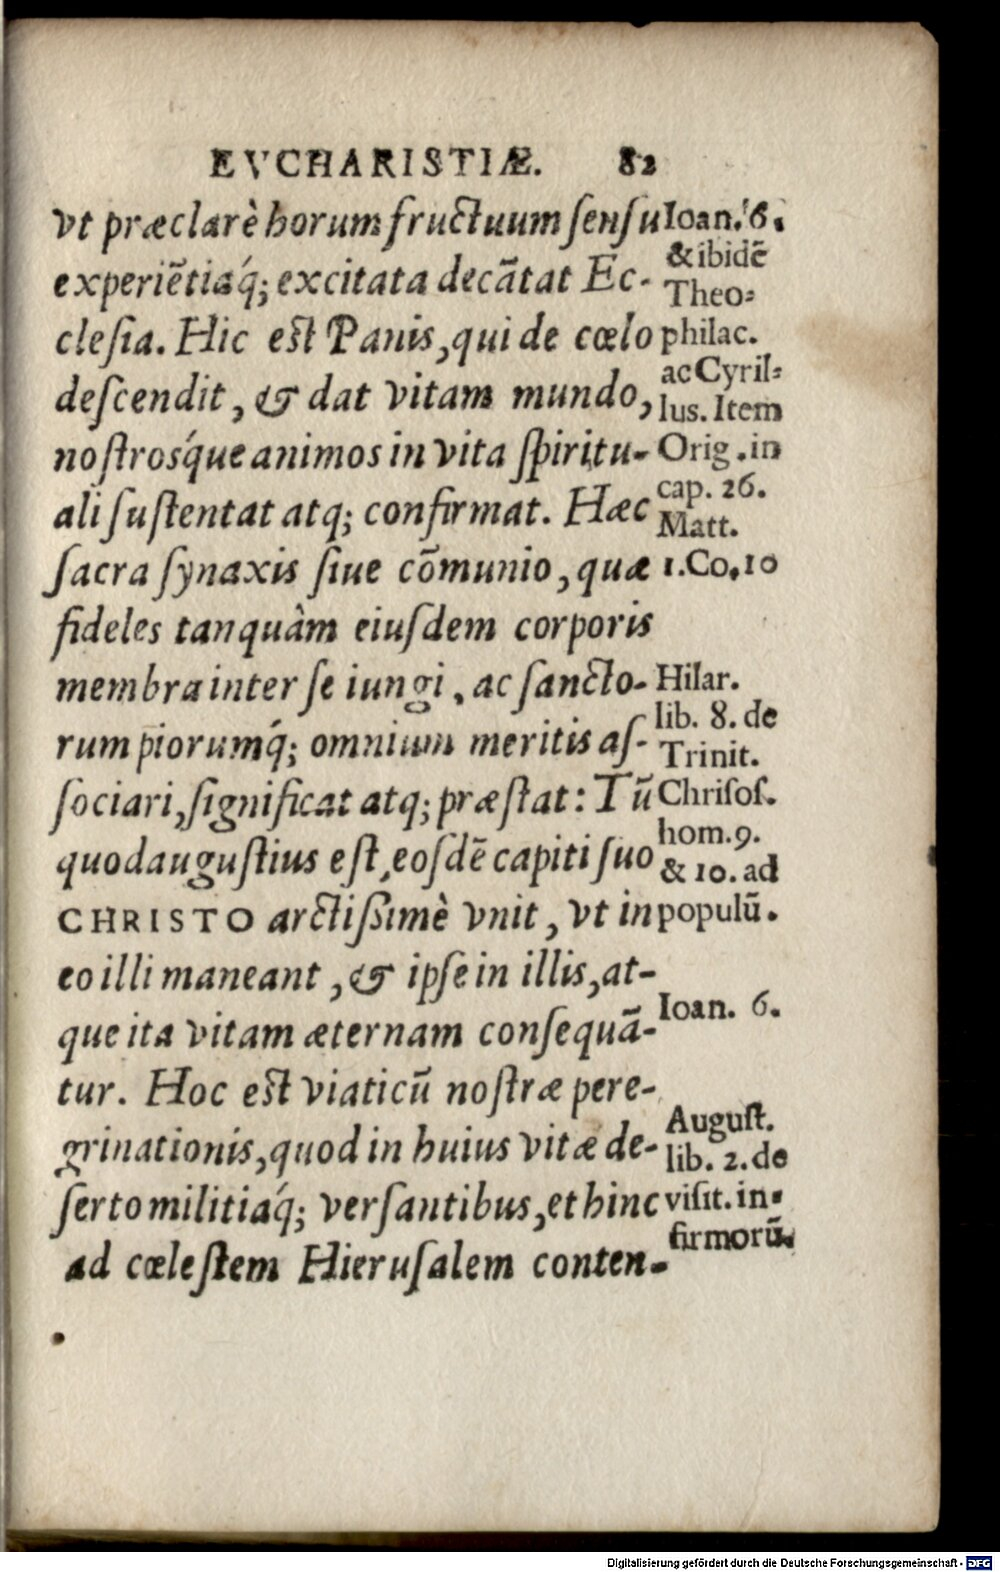 EVCHARISTIÆ. 82
vt præclarè horum fructuum sensu
experiẽtiaq́; excitata decãtat Ec-
clesia. Hic est Panis, qui de cœlo
descendit, & dat vitam mundo,
nostrosq́ue animos in vita spiritu-
ali sustentat atq; confirmat. Hæc
sacra synaxis siue cõmunio, quæ
fideles tanquàm eiusdem corporis
membra inter se iungi, ac sancto-
rum piorumq́; omnium meritis as-
sociari, significat atq; præstat: Tũ
quod augustius est, eosdẽ capiti suo
CHRISTO arctissimè vnit, vt in
eo illi maneant, & ipse in illis, at-
que ita vitam æternam consequã-
tur. Hoc est viaticũ nostræ pere-
grinationis, quod in huius vitæ de-
serto militiaq́; versantibus, et hinc
ad cœlestem Hierusalem conten-
Ioan. 6.
& ibidẽ
Theo-
philac.
ac Cyril-
lus. Item
Orig. in
cap. 26.
Matt.
1. Co. 10
Hilar.
lib. 8. de
Trinit.
Chrisos.
hom. 9.
& 10. ad
populũ.
Ioan. 6.
August.
lib. 2. de
visit. in-
firmorũ.
Digitalisierung gefördert durch die Deutsche Forschungsgemeinschaft - DFG